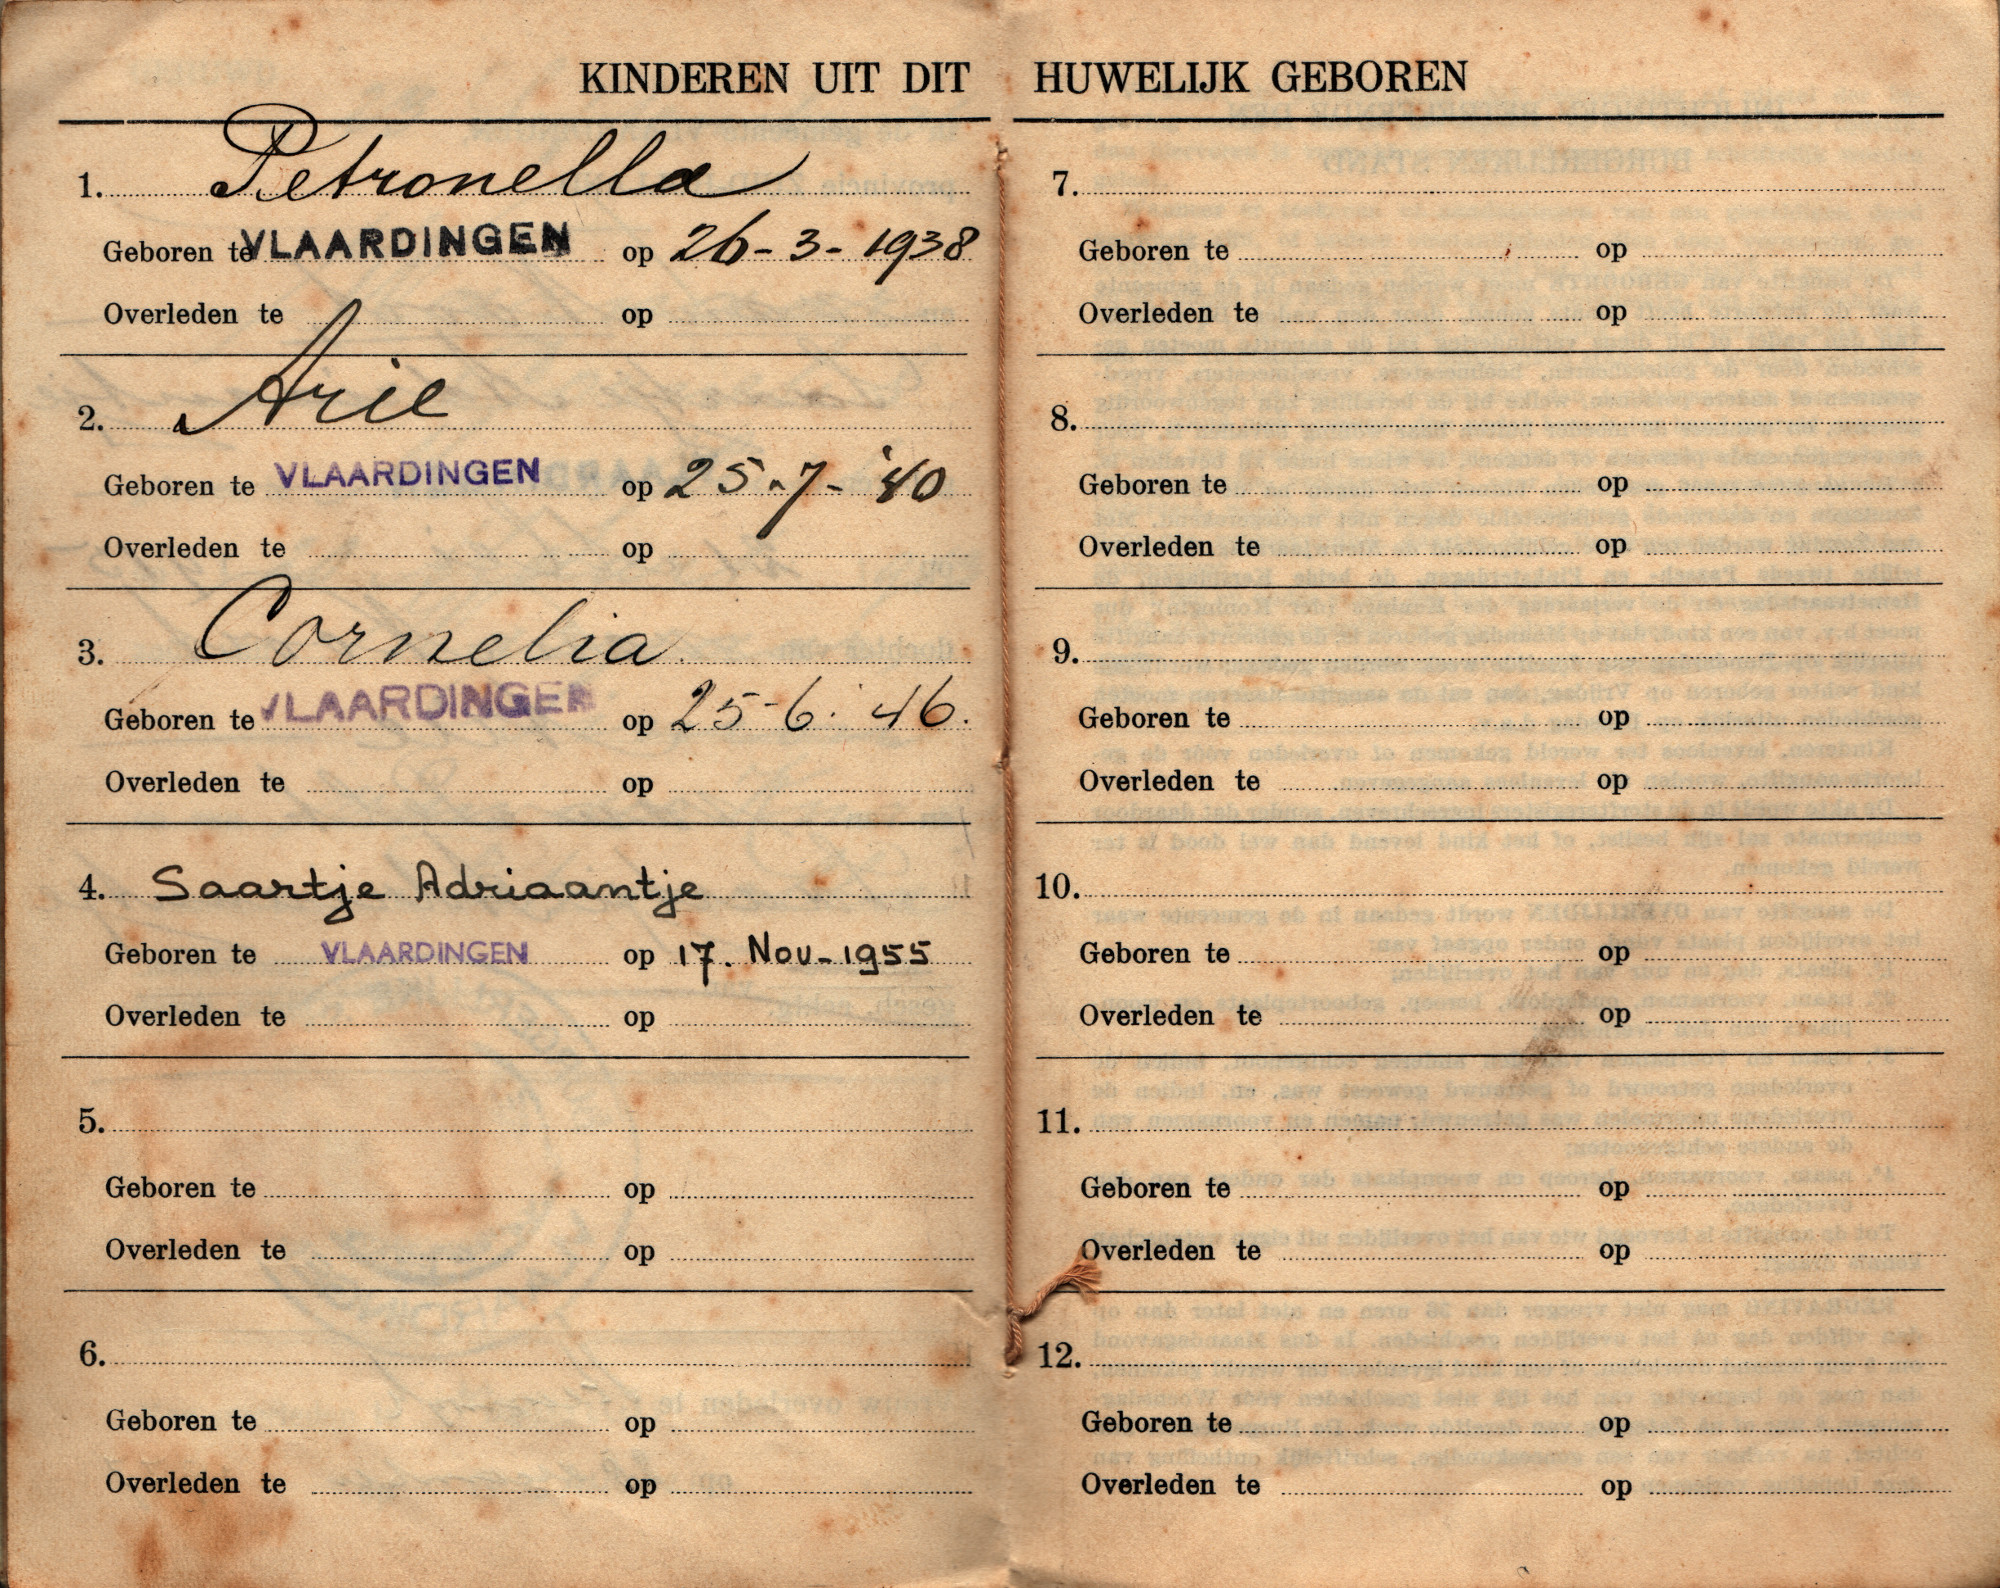 KINDEREN UIT DIT HUWELIJK GEBOREN
1. Petronella
Geboren te VLAARDINGEN op 26-3-1938
Overleden te op
2. Arie
Geboren te VLAARDINGEN op 25-7-'40
Overleden te op
3. Cornelia
Geboren te VLAARDINGEN op 25-6.46.
Overleden te op
4. Saartje Adriaantje
Geboren te VLAARDINGEN op 17. Nov-1955
Overleden te op
5.
Geboren te op
Overleden te op
6.
Geboren te op
Overleden te op
7.
Geboren te op
Overleden te op
8.
Geboren te op
Overleden te op
9.
Geboren te op
Overleden te op
10.
Geboren te op
Overleden te op
11.
Geboren te op
Overleden te op
12.
Geboren te op
Overleden te op